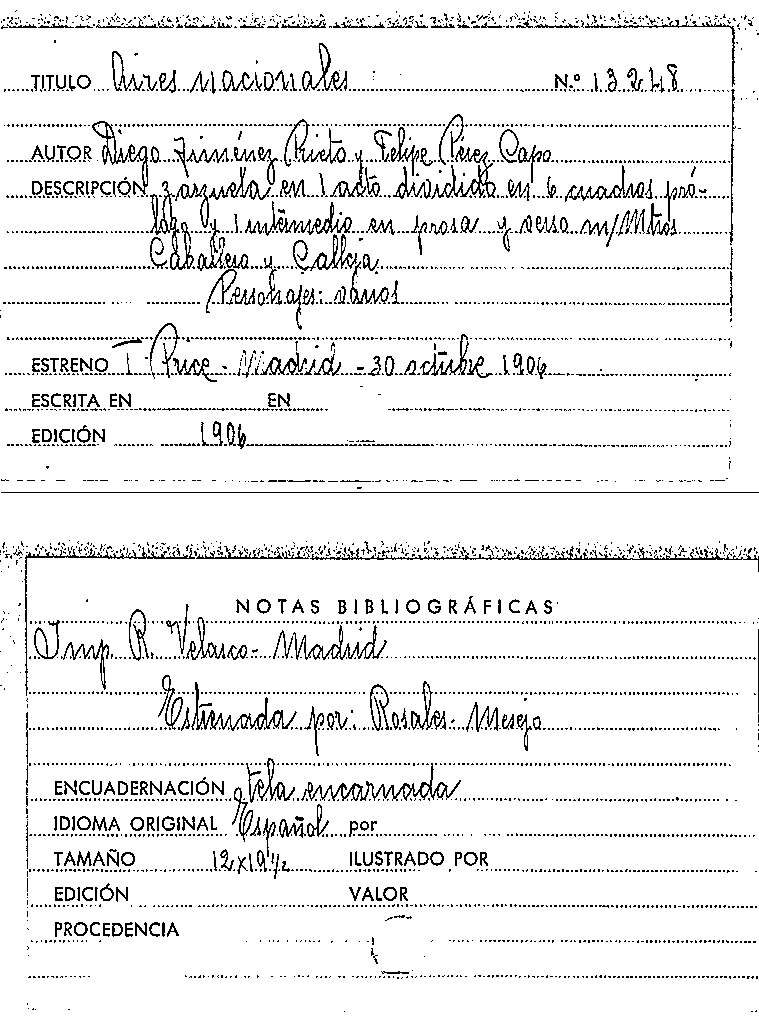 TITULO Aires nacionales N.º 13248
AUTOR Diego Jiménez Prieto y Felipe Pérez Capo
DESCRIPCIÓN Zarzuela en 1 acto dividido en 6 cuadros pró-
logo y 1 intermedio en prosa y verso m/Mtros
Caballero y Calleja
Personajes: varios
ESTRENO T. Price - Madrid - 30 octubre 1906
ESCRITA EN EN
EDICIÓN 1906
NOTAS BIBLIOGRÁFICAS
Imp. R. Velasco - Madrid
Estrenada por: Rosales - Mesejo
ENCUADERNACIÓN tela encarnada
IDIOMA ORIGINAL Español por
TAMAÑO 12x19½ ILUSTRADO POR
EDICIÓN VALOR
PROCEDENCIA